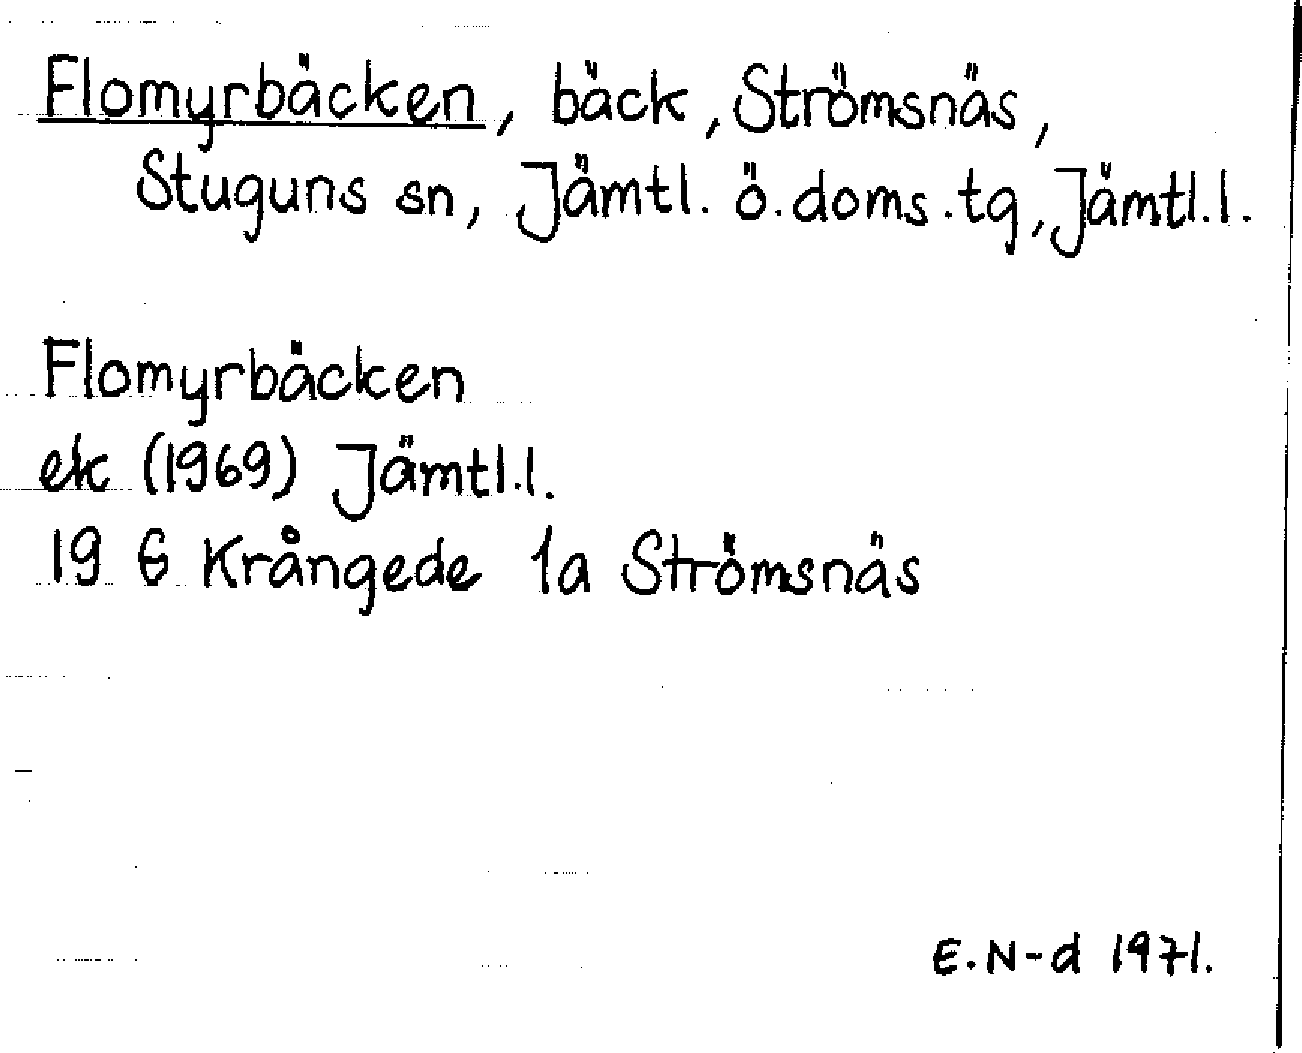 Flomyrbäcken, bäck, Strömsnäs,
Stuguns sn, Jämtl. ö. doms. tg, Jämtl. l.
Flomyrbäcken
ek (1969) Jämtl. l.
19 G Krångede 1a Strömsnäs
E. N-d 1971.